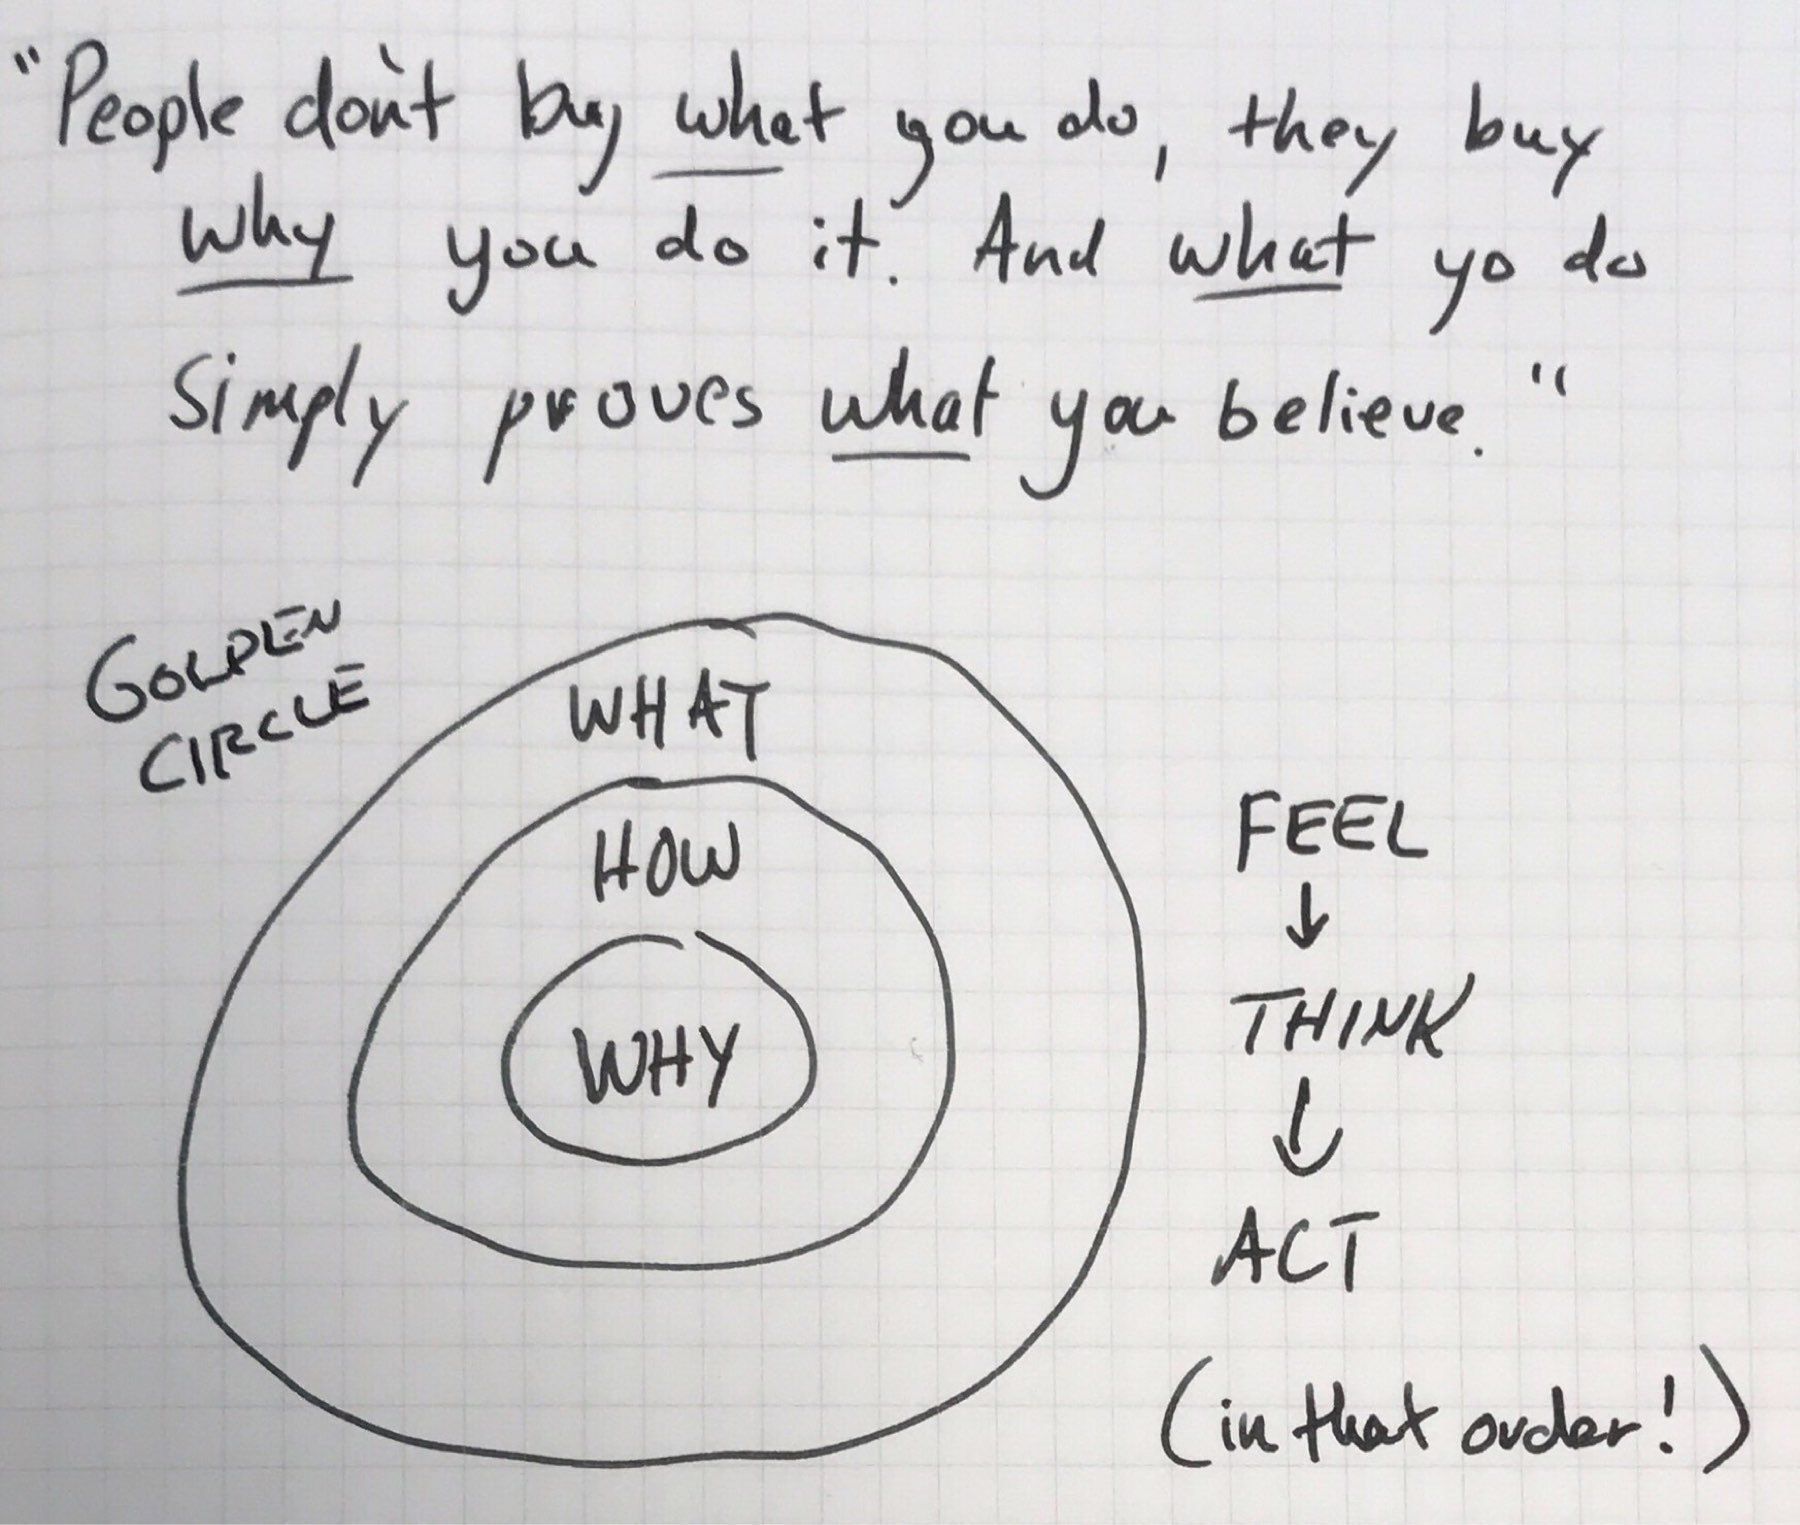 "People don't buy what you do, they buy
why you do it. And what yo do
simply proves what you believe."
GOLDEN
CIRCLE
WHAT
HOW
WHY
FEEL
↓
THINK
↓
ACT
(in that order!)